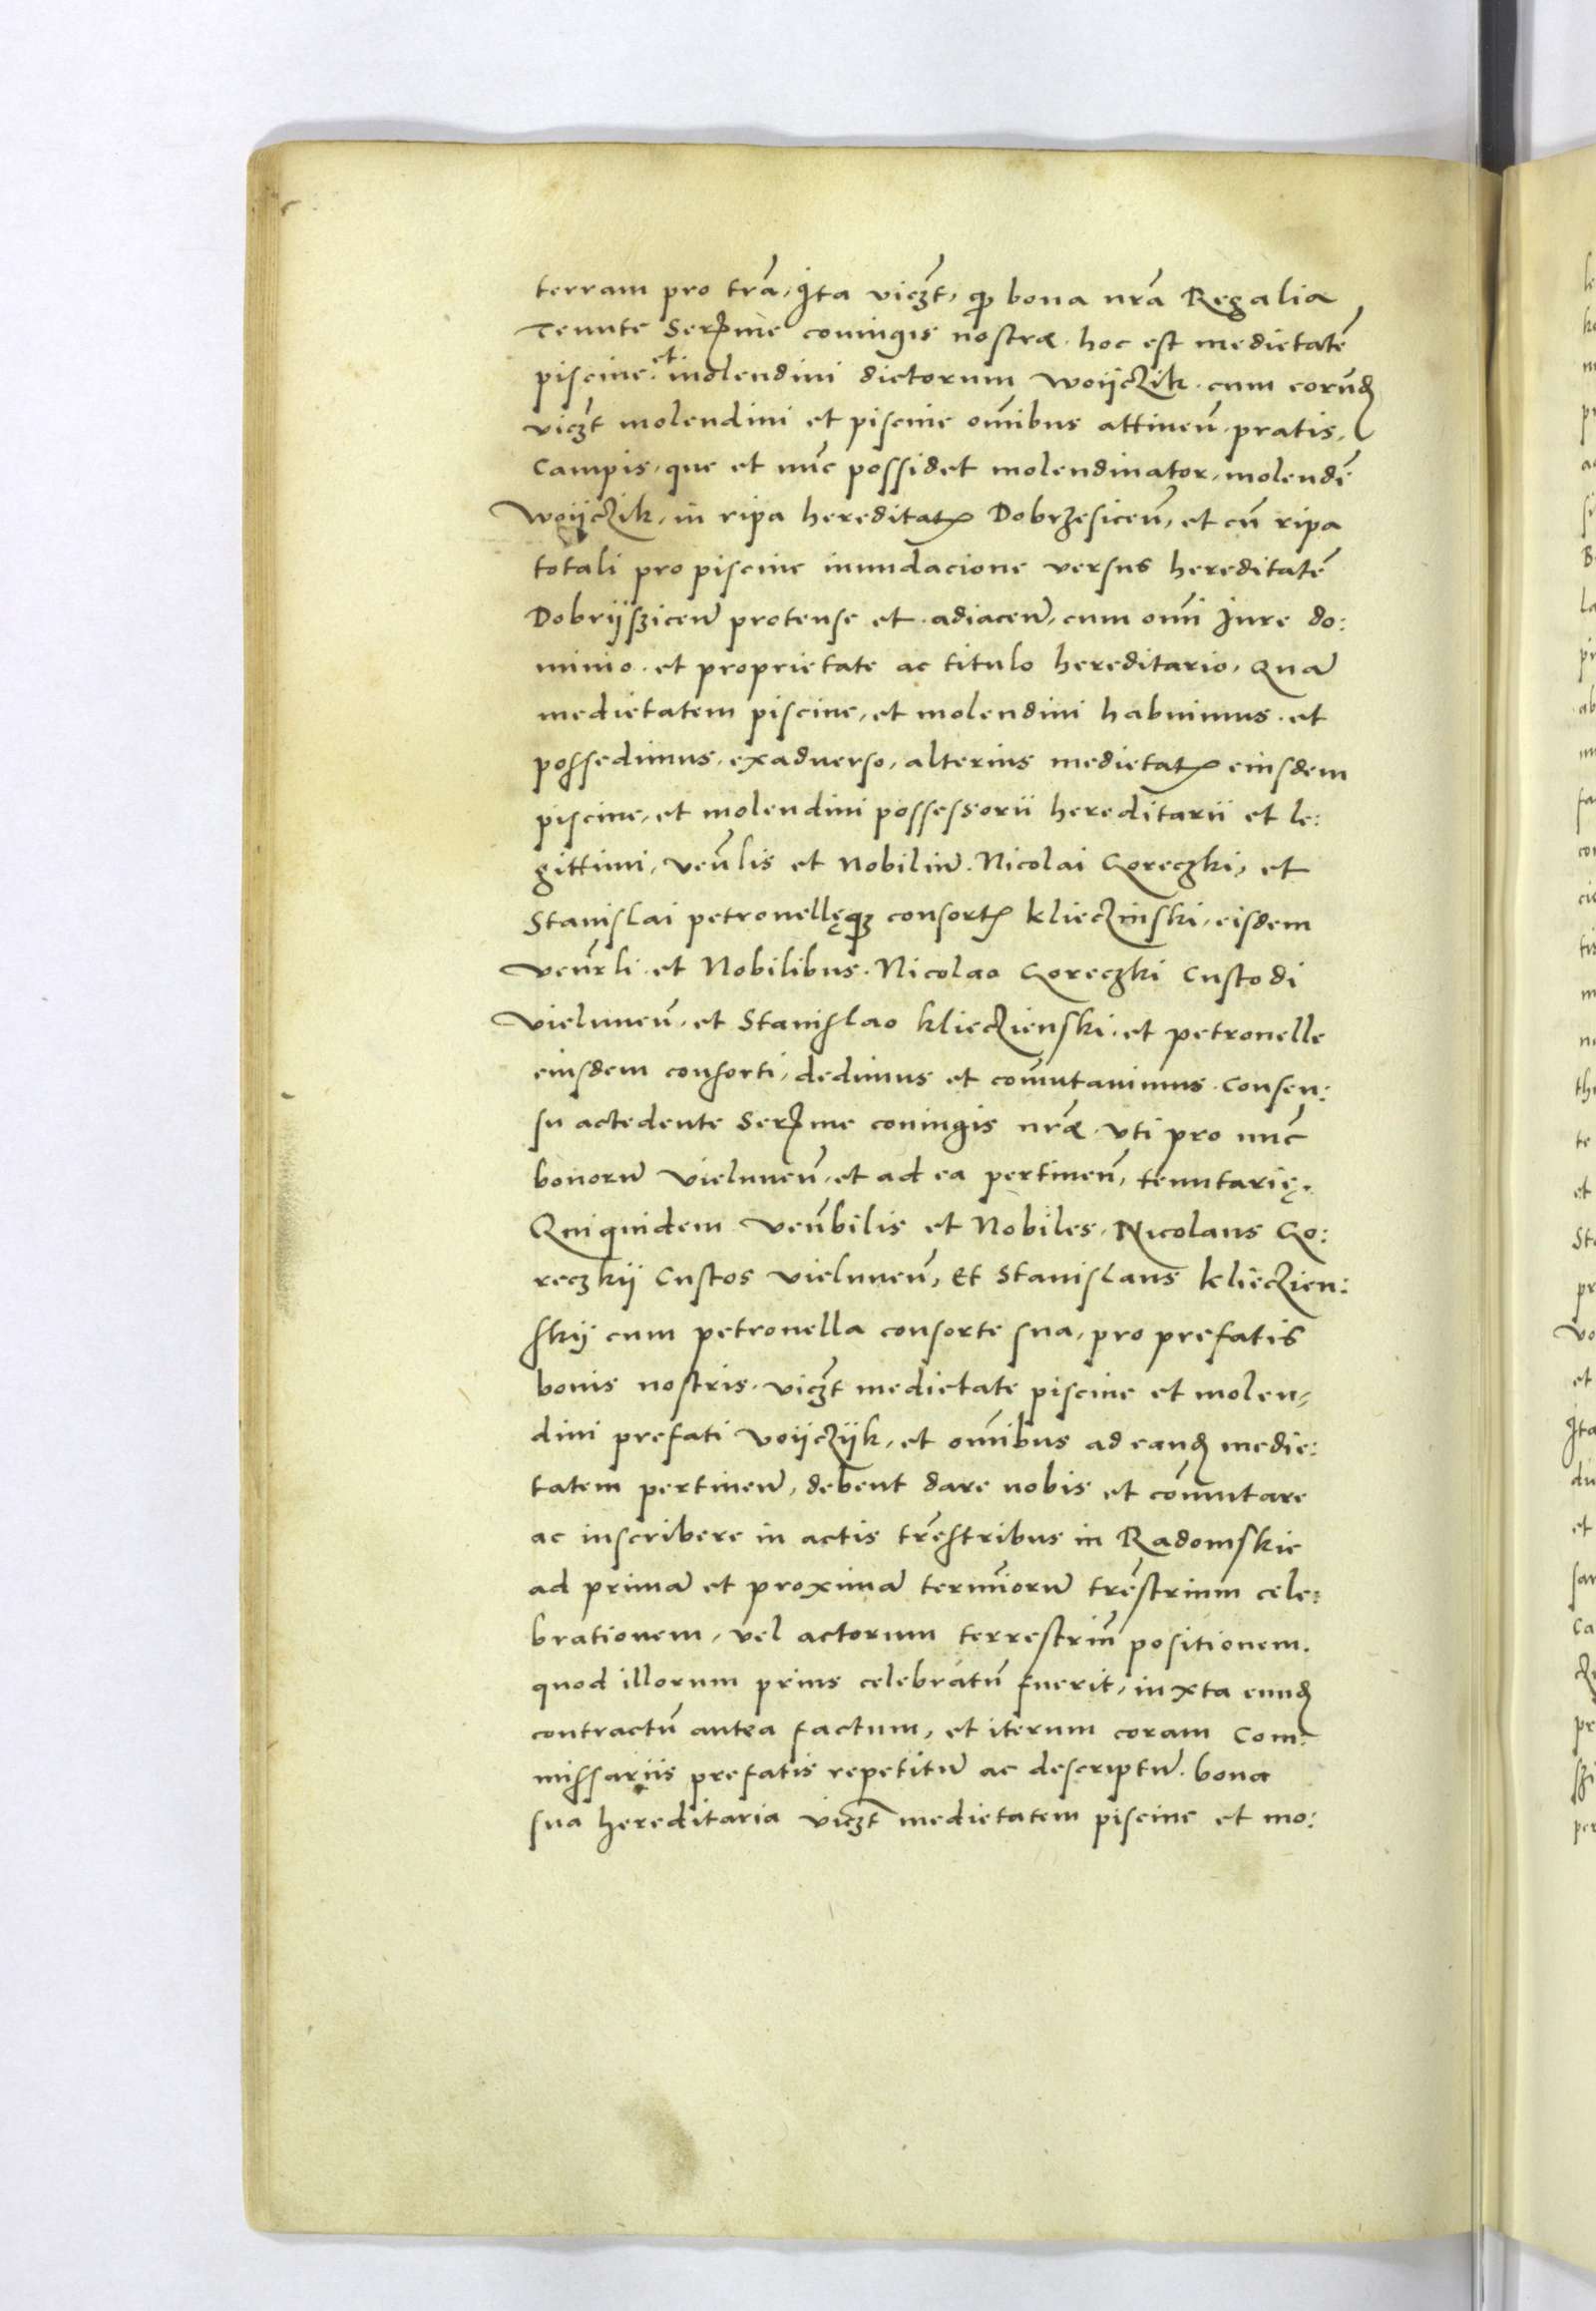 terram pro tr̃a, Ita vicꝫt, qͩ bona nr̃a Regalia
Tenute Serẜme coniugis nostræ. hoc est medietatē
piscine. et molendini dictorum woijczik. cum eorūd
vicꝫt molendini et piscine om̄ibus attineñ. pratis,
Campis, que et nūc possidet molendinator, molendī
woijczik, in ripa hereditatꝭ Dobrzesiceñ, et cū ripa
totali pro piscine inundacione versus hereditatē
Dobrijsziceñ protense et adiaceñ, cum om̄i Jure do:
minio. et proprietate ac titulo hereditario, Quā
medietatem piscine, et molendini habuimus. et
possedimus, exaduerso, alterius medietatꝭ eiusdem
piscine, et molendini possessorii hereditarii et le:
gittimi, veñlis et Nobiliū. Nicolai Goreczki, et
Stanislai petronellęqꝫ consortꝭ klieczinski, eisdem
veñrli. et Nobilibus. Nicolao Goreczki Custodi
vieluneñ, et Stanislao klieczienski. et petronelle
eiusdem consorti, dedimus et com̄utauimus. Consen:
su actedente Serẜme coniugis nr̃æ. vti pro nūc
bonorū vieluneñ, et ad ea pertineñ, tenutarię.
Quiquidem veñbilis et Nobiles, Nicolaus Go:
reczkij Custos vieluneñ, Et Stanislaus klieczien:
skij cum petronella consorte sua, pro prefatis
bonis nostris. vicꝫt medietate piscine et molen,
dini prefati voijczijk, et om̄ibus ad eand medie:
tatem pertineñ, debent dare nobis et com̄utare
ac inscribere in actis tr̃estribus in Radomskie
ad primā et proximā termīorū tr̃estrium cele:
brationem, vel actorum terrestriū positionem.
quod illorum prius celebratū fuerit, iuxta eund
contractū antea factum, et iterum coram Com:
missariis prefatis repetitū ac descriptū. bona
sua hereditaria vicꝫt medietatem piscine et mo: